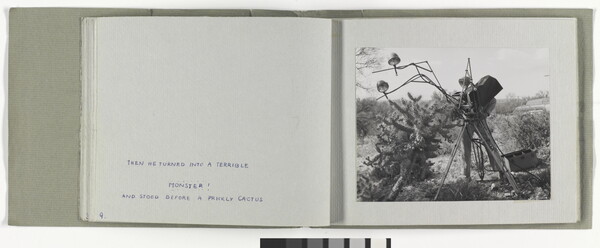 THEN HE TURNED INTO A TERRIBLE
MONSTER!
AND STOOD BEFORE A PRICKLY CACTUS
9.